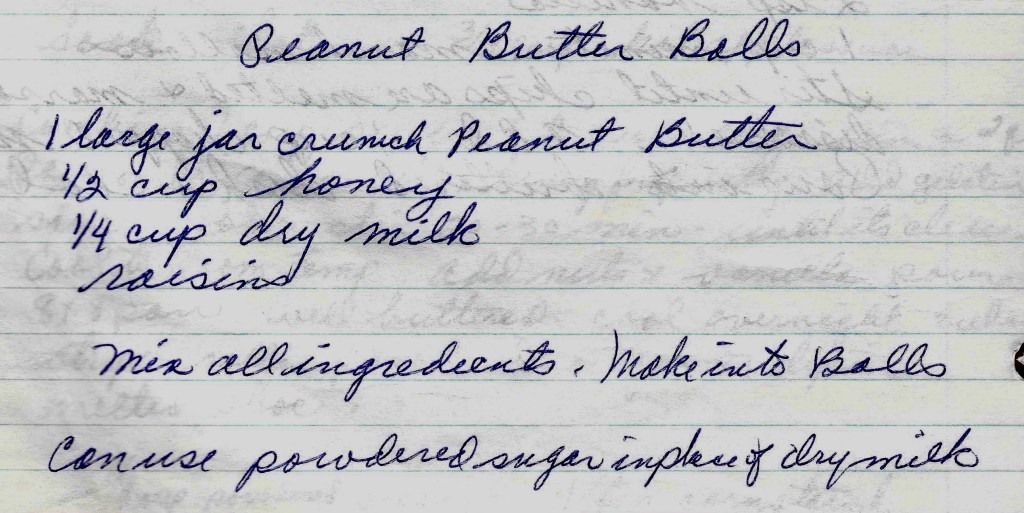 Peanut Butter Balls
1 large jar crunch Peanut Butter
1/2 cup honey
1/4 cup dry milk
raisins
Mix all ingredients. Make into Balls
Can use powdered sugar in place of dry milk